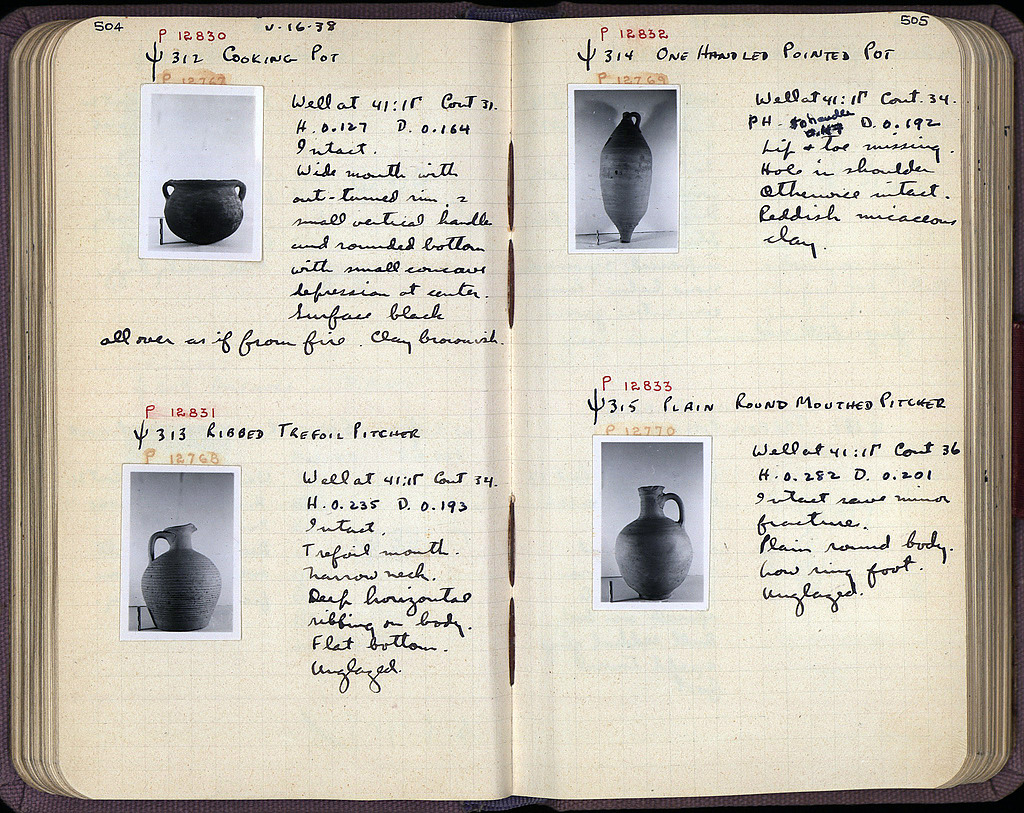 504
V-16-38
P 12830
Ψ 312 COOKING POT
P 12767
Well at 41:ΙΓ Cont 31.
H. 0.127 D. 0.164
Intact.
Wide mouth with
out-turned rim, 2
small vertical handles
and rounded bottom
with small concave
depression at center.
Surface black
all over as if from fire. Clay brownish.
P 12831
Ψ 313 RIBBED TREFOIL PITCHER
P 12768
Well at 41:ΙΓ Cont 34.
H. 0.235 D. 0.193
Intact.
Trefoil mouth.
Narrow neck.
Deep horizontal
ribbing on body.
Flat bottom.
Unglazed.
505
P 12832
Ψ 314 ONE HANDLED POINTED POT
P 12769
Well at 41:ΙΓ Cont. 34.
PH. to handle D. 0.192
Lip & toe missing.
Hole in shoulder
Otherwise intact.
Reddish micaceous
clay.
P 12833
Ψ 315 PLAIN ROUND MOUTHED PITCHER
P 12770
Well at 41:ΙΓ Cont 36
H. 0.282 D. 0.201
Intact save minor
fracture.
Plain round body.
Low ring foot.
Unglazed.